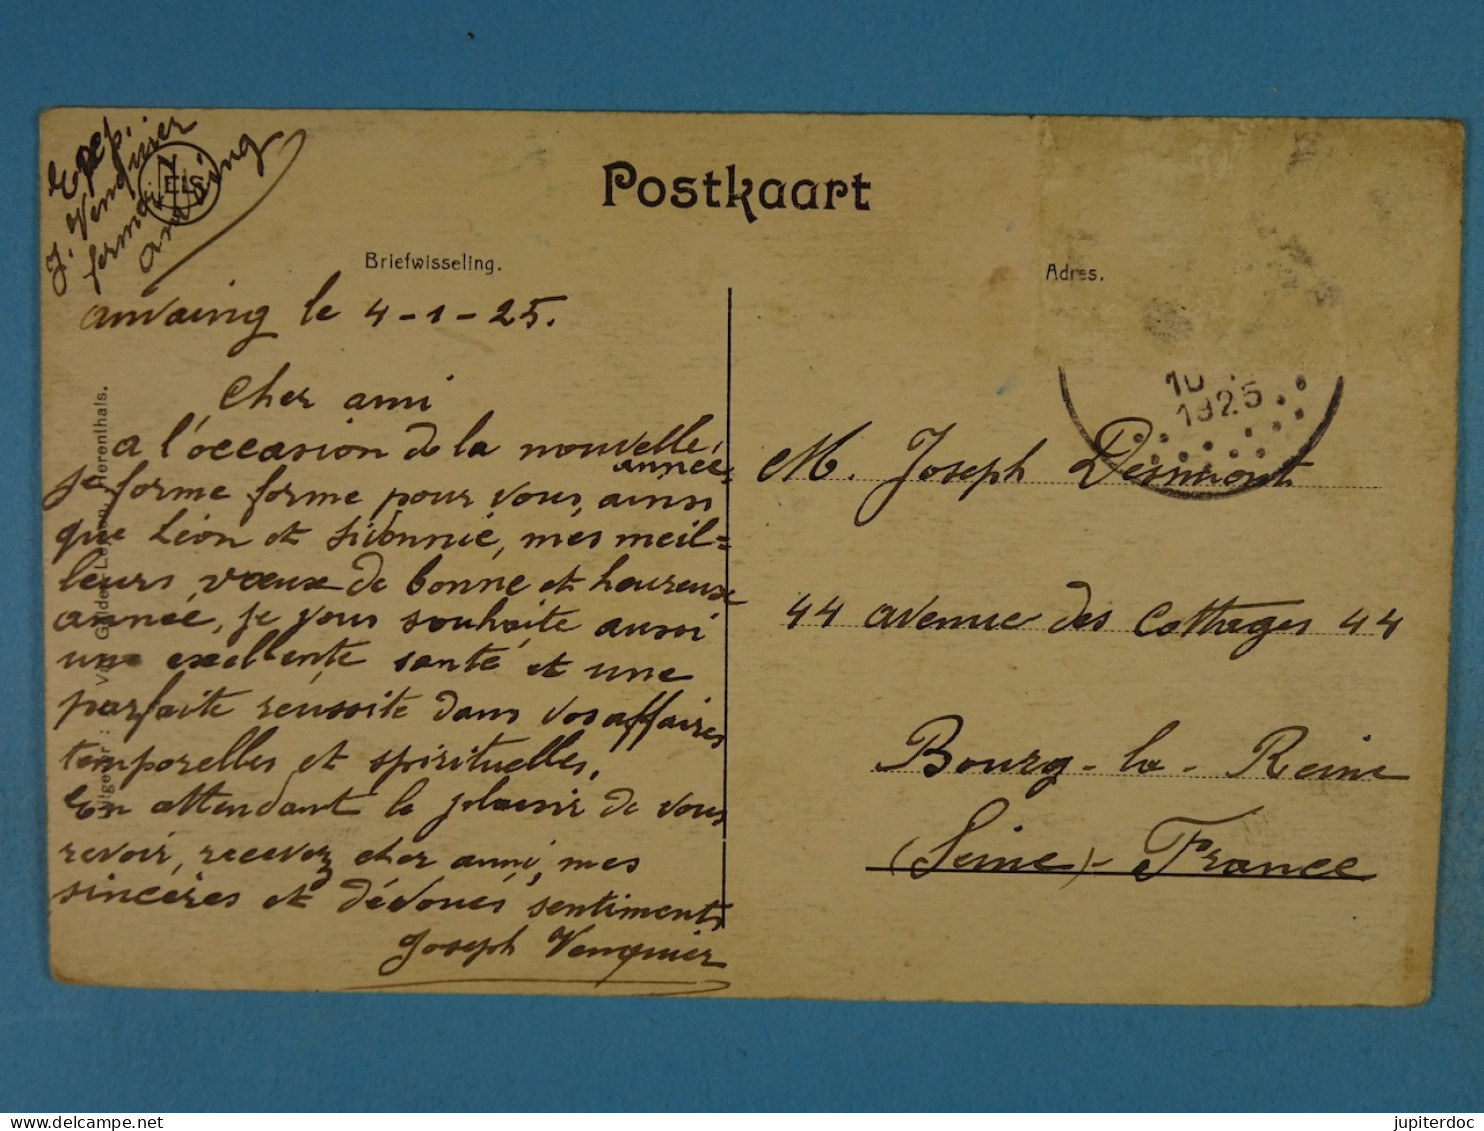 Exep.
J. Venquier
fermier
anvaing
NELS
Postkaart
Briefwisseling.
Adres.
anvaing le 4-1-25.
Cher ami
a l'occasion de la nouvelle
année,
je forme forme pour vous, ainsi
que Léon et, mes meil=
leurs vœux de bonne et heureuse
année, je vous souhaite aussi
une excellente santé et une
parfaite réussite dans vos affaires
temporelles et spirituelles.
En attendant le plaisir de vous
revoir, recevez cher ami, mes
sincères et dévoués sentiments
Joseph Venquier
Uitgever: Herenthals.
10
1925
M. Joseph Desmont
44 avenue des Cottages 44
Bourg-la-Reine
(Seine)-France
jupiterdoc